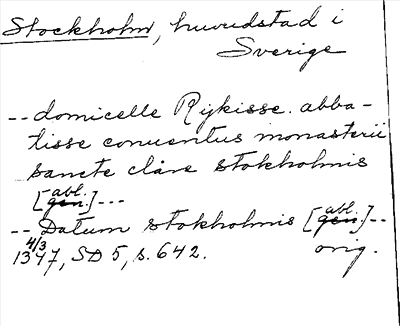 Stockholm, huvudstad i
Sverige
-- domicelle Rijkisse. abba-
tisse conuentus monasterii
sancte clare stokholmis
[abl. gen.] ---
-- Datum stokholmis [abl. gen.] --
4/3 1347, SD 5, s. 642. orig.